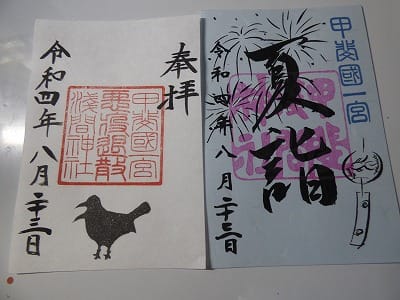 奉拝
甲斐國一宮
悪疫退散
浅間神社
令和四年八月二十三日
甲斐國一宮
夏詣
令和四年八月二十三日